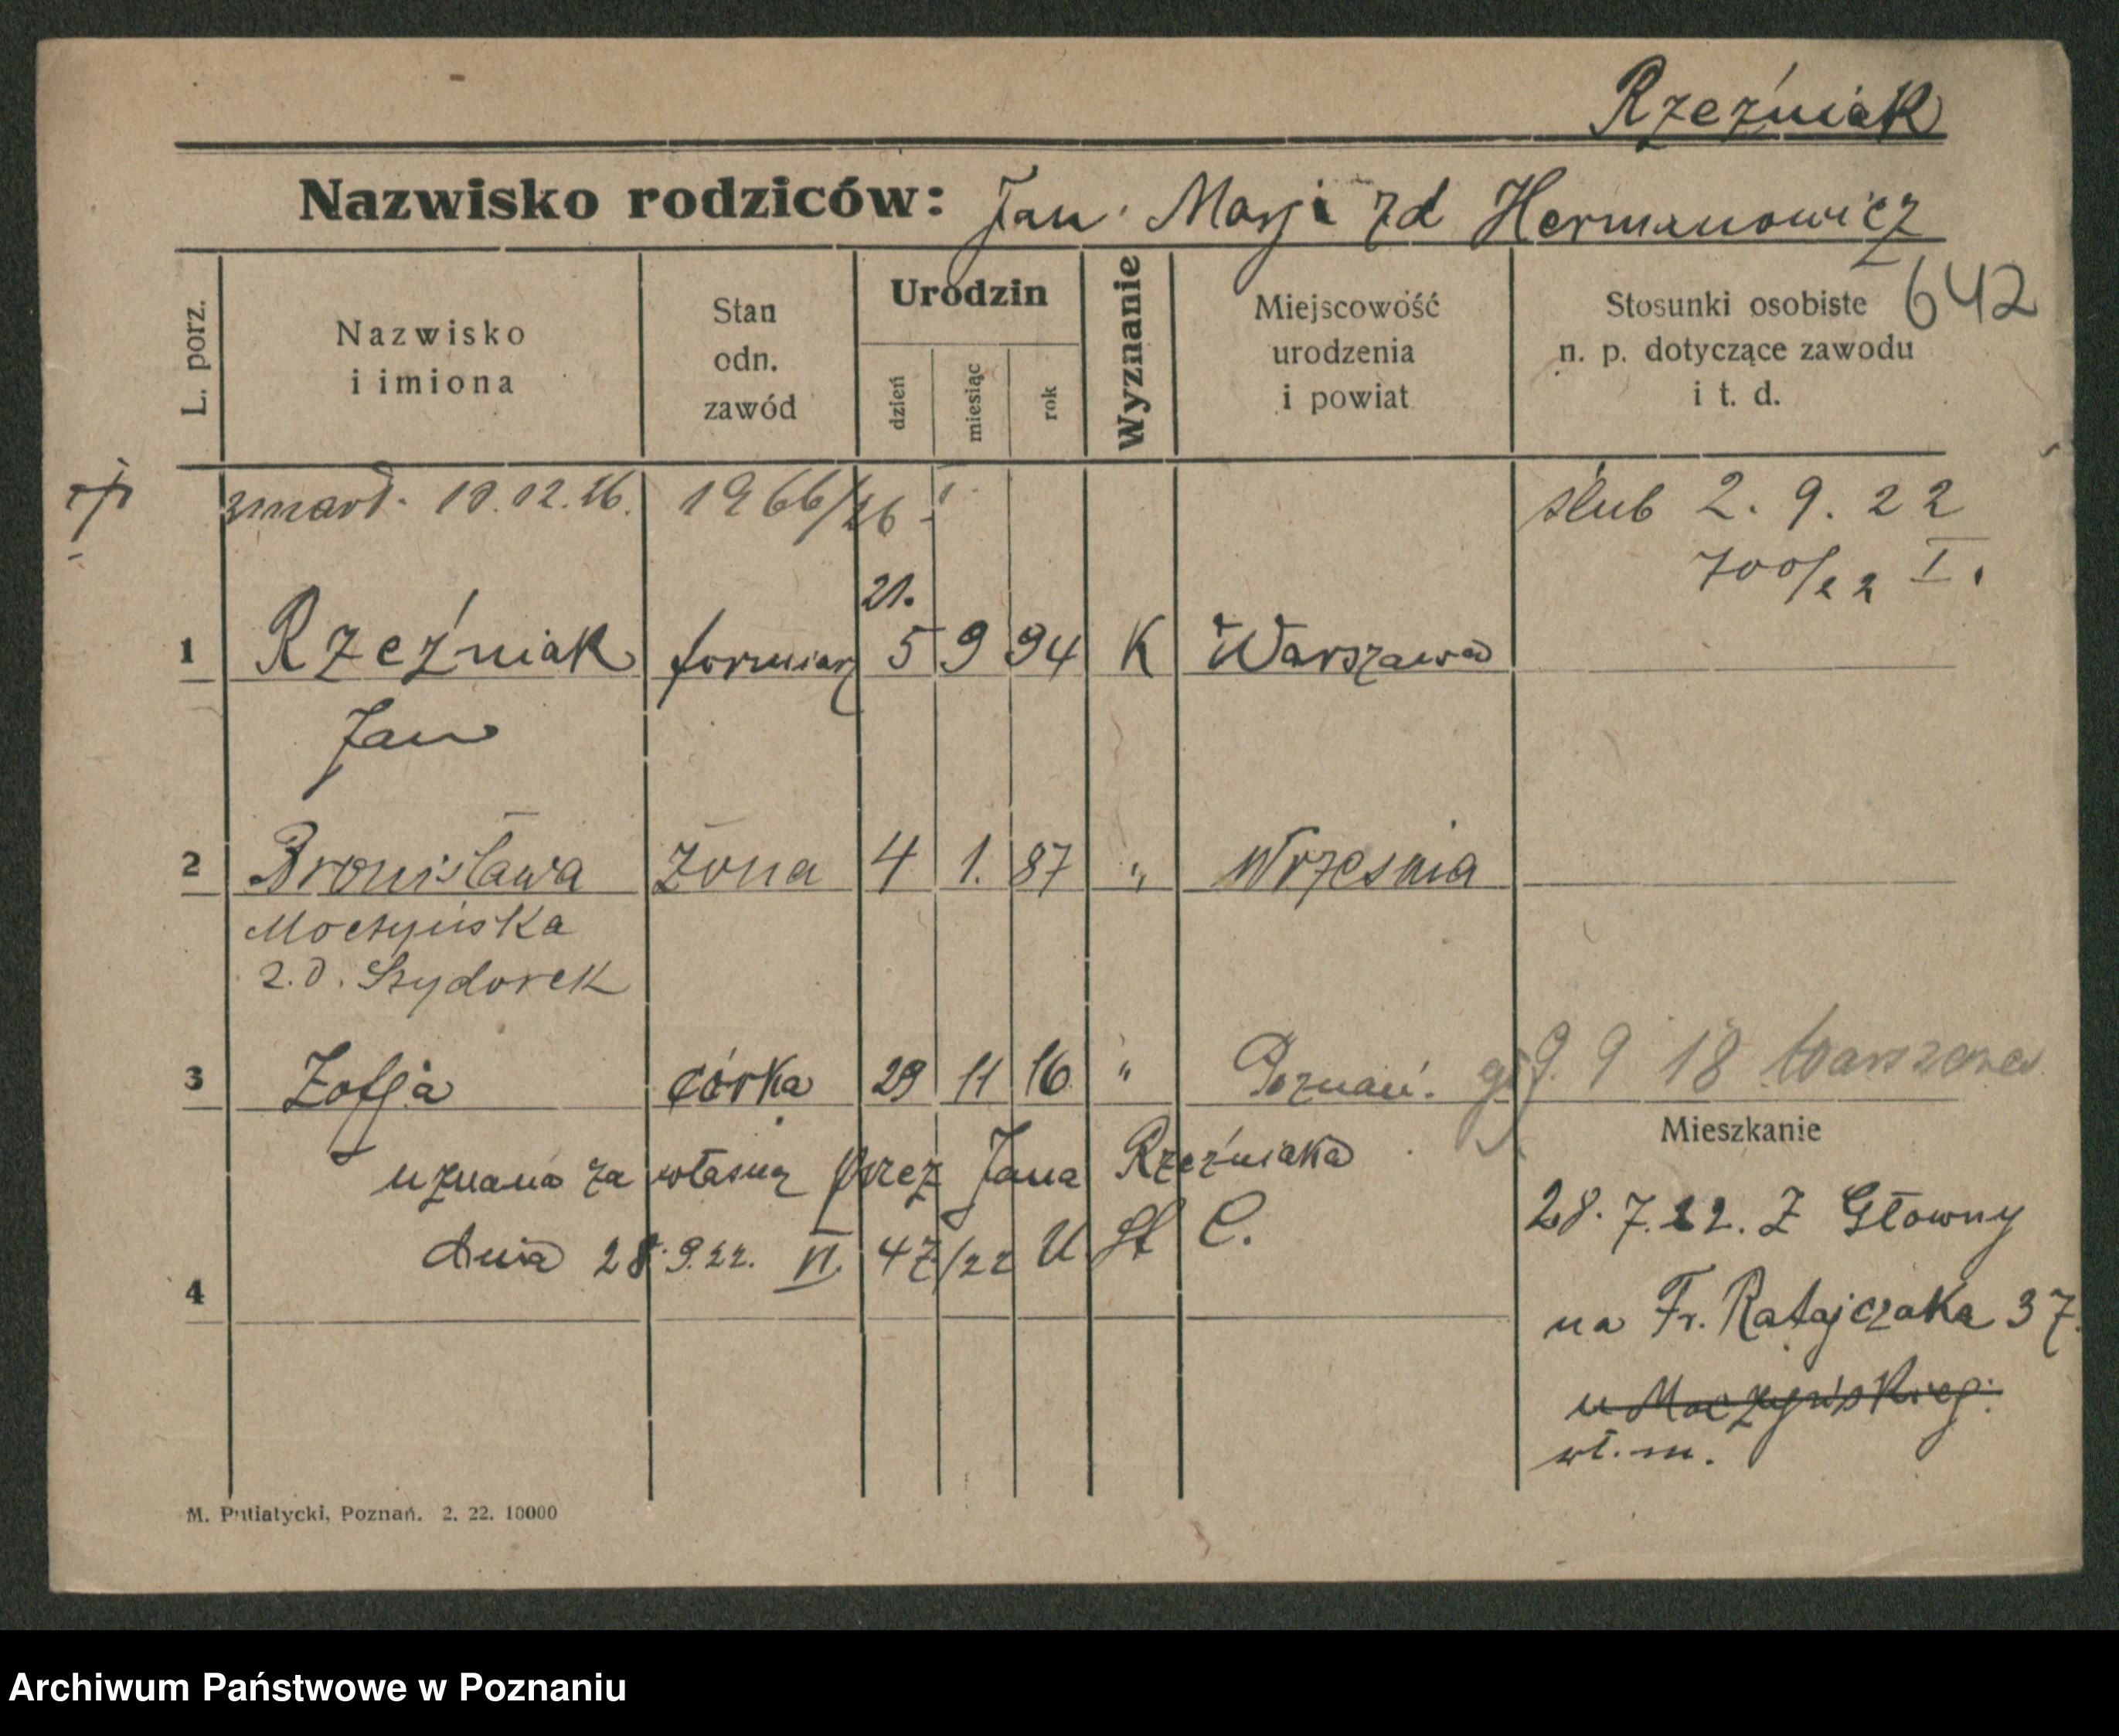 Rzeźniak
Nazwisko rodziców: Jan Marji zd Hermanowicz
642
L. porz.
Nazwisko
i imiona
Stan
odn.
zawód
Urodzin
dzień
miesiąc
rok
Wyznanie
Miejscowość
urodzenia
i powiat
Stosunki osobiste
n. p. dotyczące zawodu
i t. d.
zmarł. 1966/26
ślub 2. 9. 22
700/22 I.
21.
1 Rzeźniak formiarz 5 9 94 K Warszawa
Jan
2 Bronisława żona 4 1. 87 " Września
z. d. Szydorek
3 Zofja córka 29 11 16 " Poznań. 9. 9 18 Warszawa
uznana za własną przez Jana Rzeźniaka
dnia 28.9.22. VI. 47/22 U St C.
4
Mieszkanie
28. 7. 22. Z Głowny
na Fr. Ratajczaka 37.
wł. m.
M. Putiatycki, Poznań. 2. 22. 10000
Archiwum Państwowe w Poznaniu